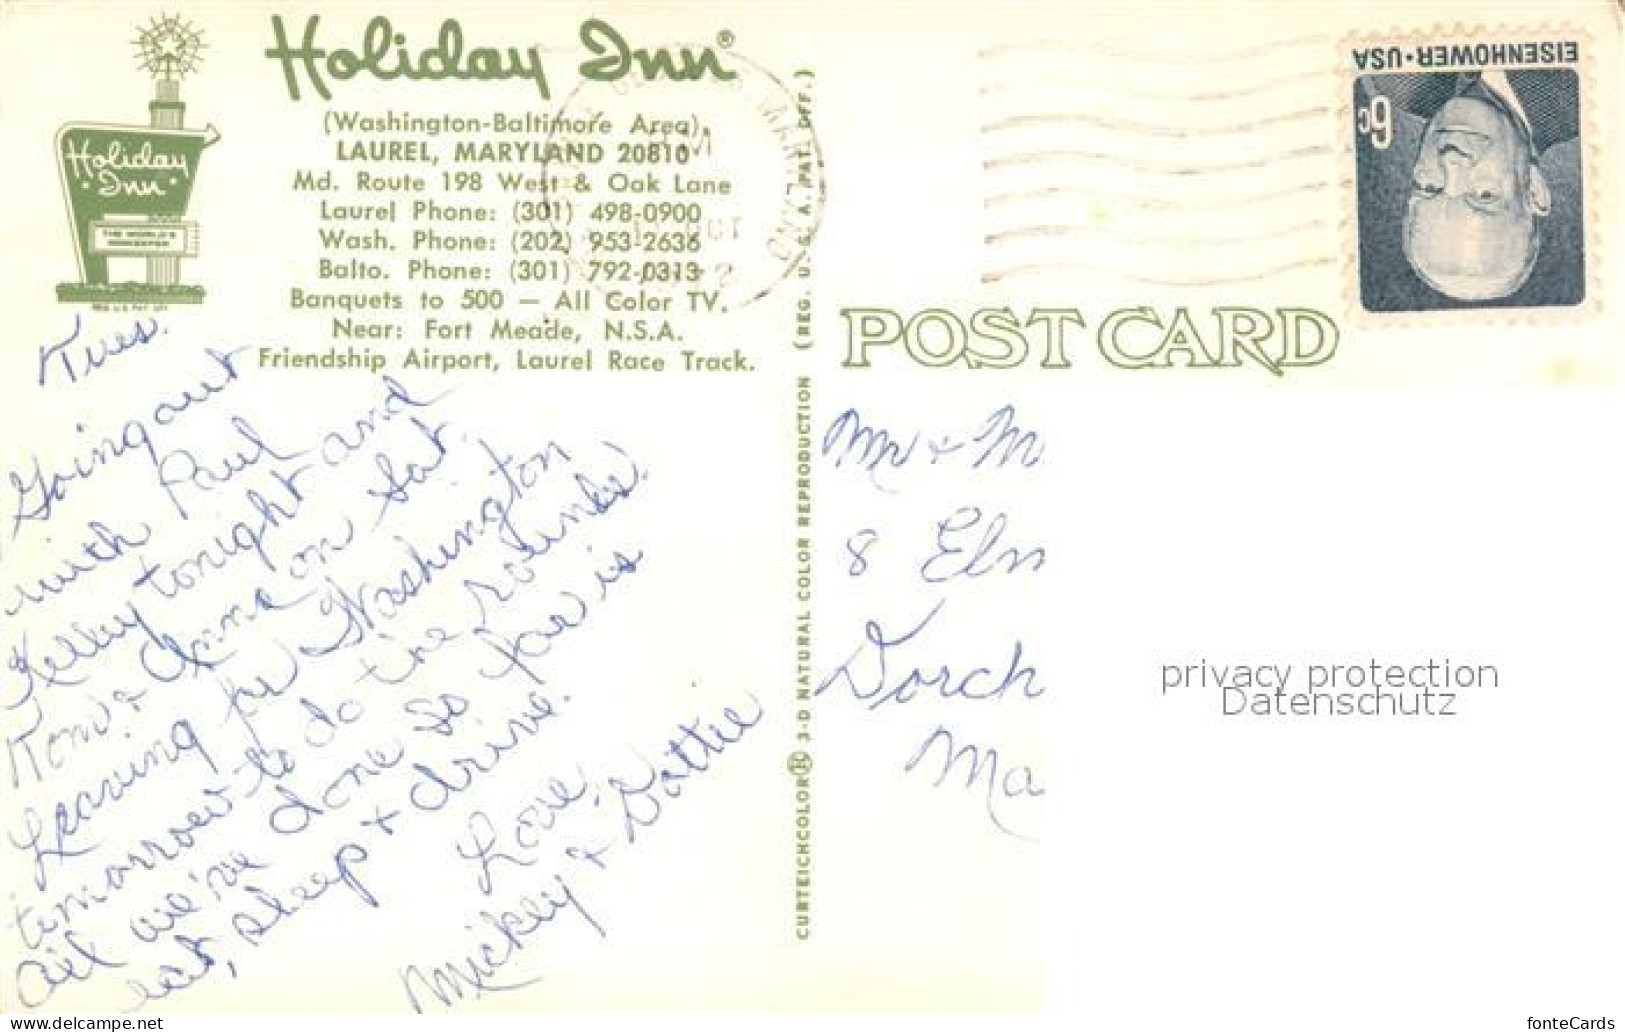 Holiday Inn®
(Washington-Baltimore Area)
LAUREL, MARYLAND 20810
Md. Route 198 West & Oak Lane
Laurel Phone: (301) 498-0900
Wash. Phone: (202) 953-2636
Balto. Phone: (301) 792-0313
Banquets to 500 — All Color TV.
Near: Fort Meade, N.S.A.
Friendship Airport, Laurel Race Track.
Holiday
Inn
THE WORLD'S
INNKEEPER
Tues.
Going out
with Paul
Kelley tonight and
Tom & Anna on Sat.
Leaving for Washington
tomorrow to do the rounds.
All we've done so far is
eat, sleep & drive.
Love,
Mickey & Dottie
CURTEICHCOLOR® 3-D NATURAL COLOR REPRODUCTION (REG. U. S. A. PAT. OFF.)
MARYLAND
OCT
EISENHOWER·USA
6c
POST CARD
Mr & M
8 Elm
Dorch
Ma
privacy protection
Datenschutz
www.delcampe.net
fonteCards